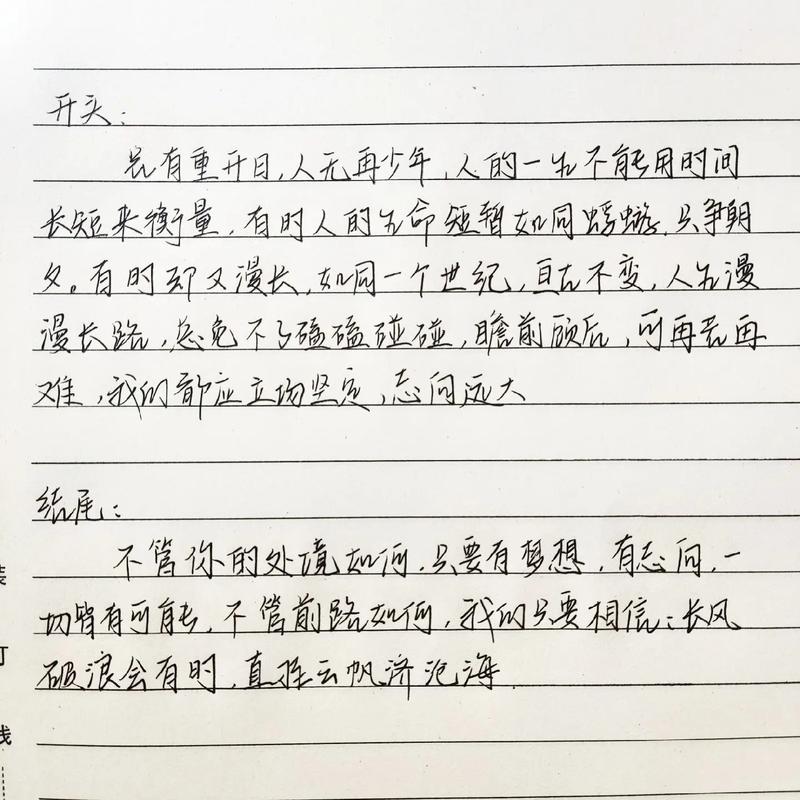 开头:
花有重开日,人无再少年,人的一生不能用时间
长短来衡量,有时人的生命短暂如同蜉蝣,只争朝
夕。有时却又漫长,如同一个世纪,亘古不变,人生漫
漫长路,总免不了磕磕碰碰,瞻前顾后,可再苦再
难,我们都应立场坚定,志向远大
结尾:
不管你的处境如何,只要有梦想,有志向,一
切皆有可能,不管前路如何,我们只要相信:长风
破浪会有时,直挂云帆济沧海
装
订
线